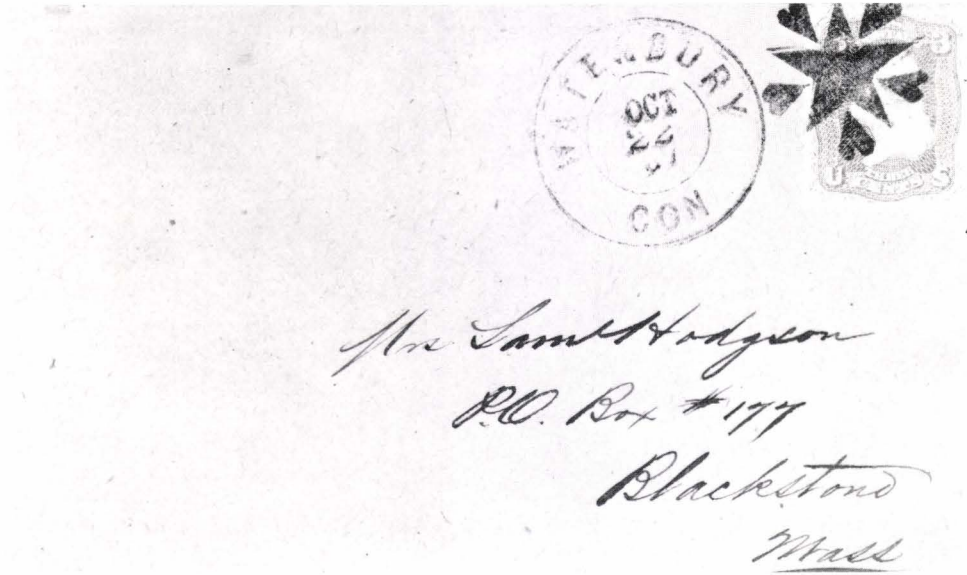 WATERBURY
OCT
CON
3 3
Mrs Saml Hodgson
P.O. Box # 177
Blackstone
Mass